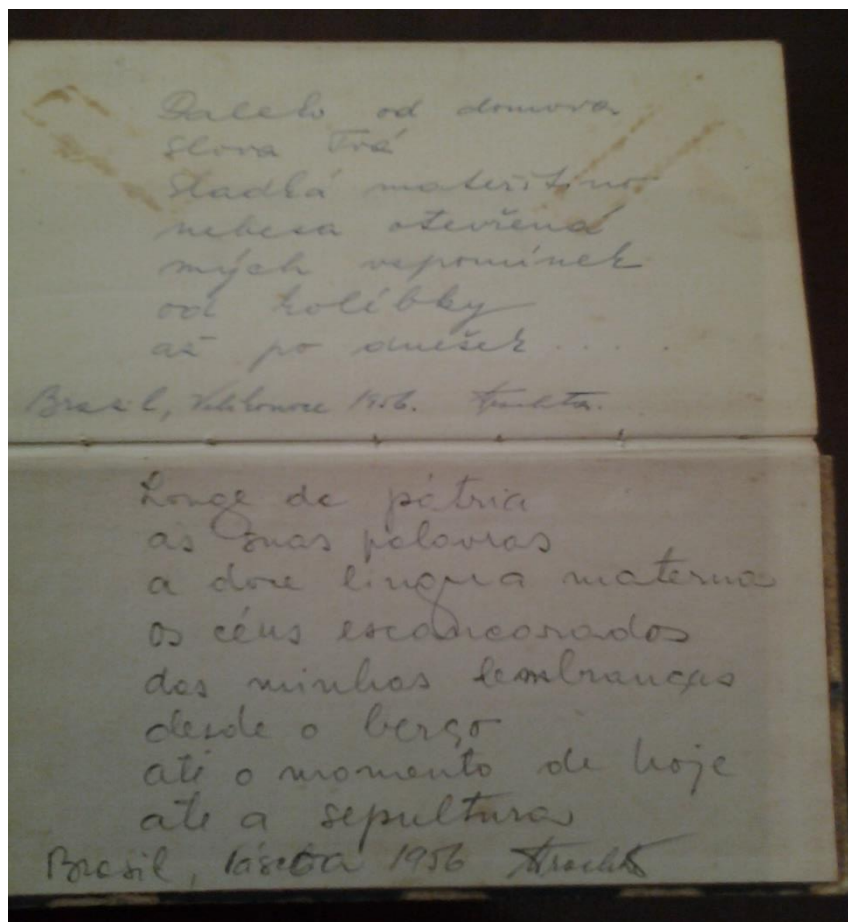 Daleko od domova
slova Tvá
sladká mateřštino
nebesa otevřená
mých vzpomínek
od kolébky
až po dnešek . . . .
Brasil, Velikonoce 1956.
Longe da pátria
as suas palavras
a doce lingua materna
os céus escancarados
das minhas lembranças
desde o berço
até o momento de hoje
ate a sepultura
Brasil, Páscoa 1956